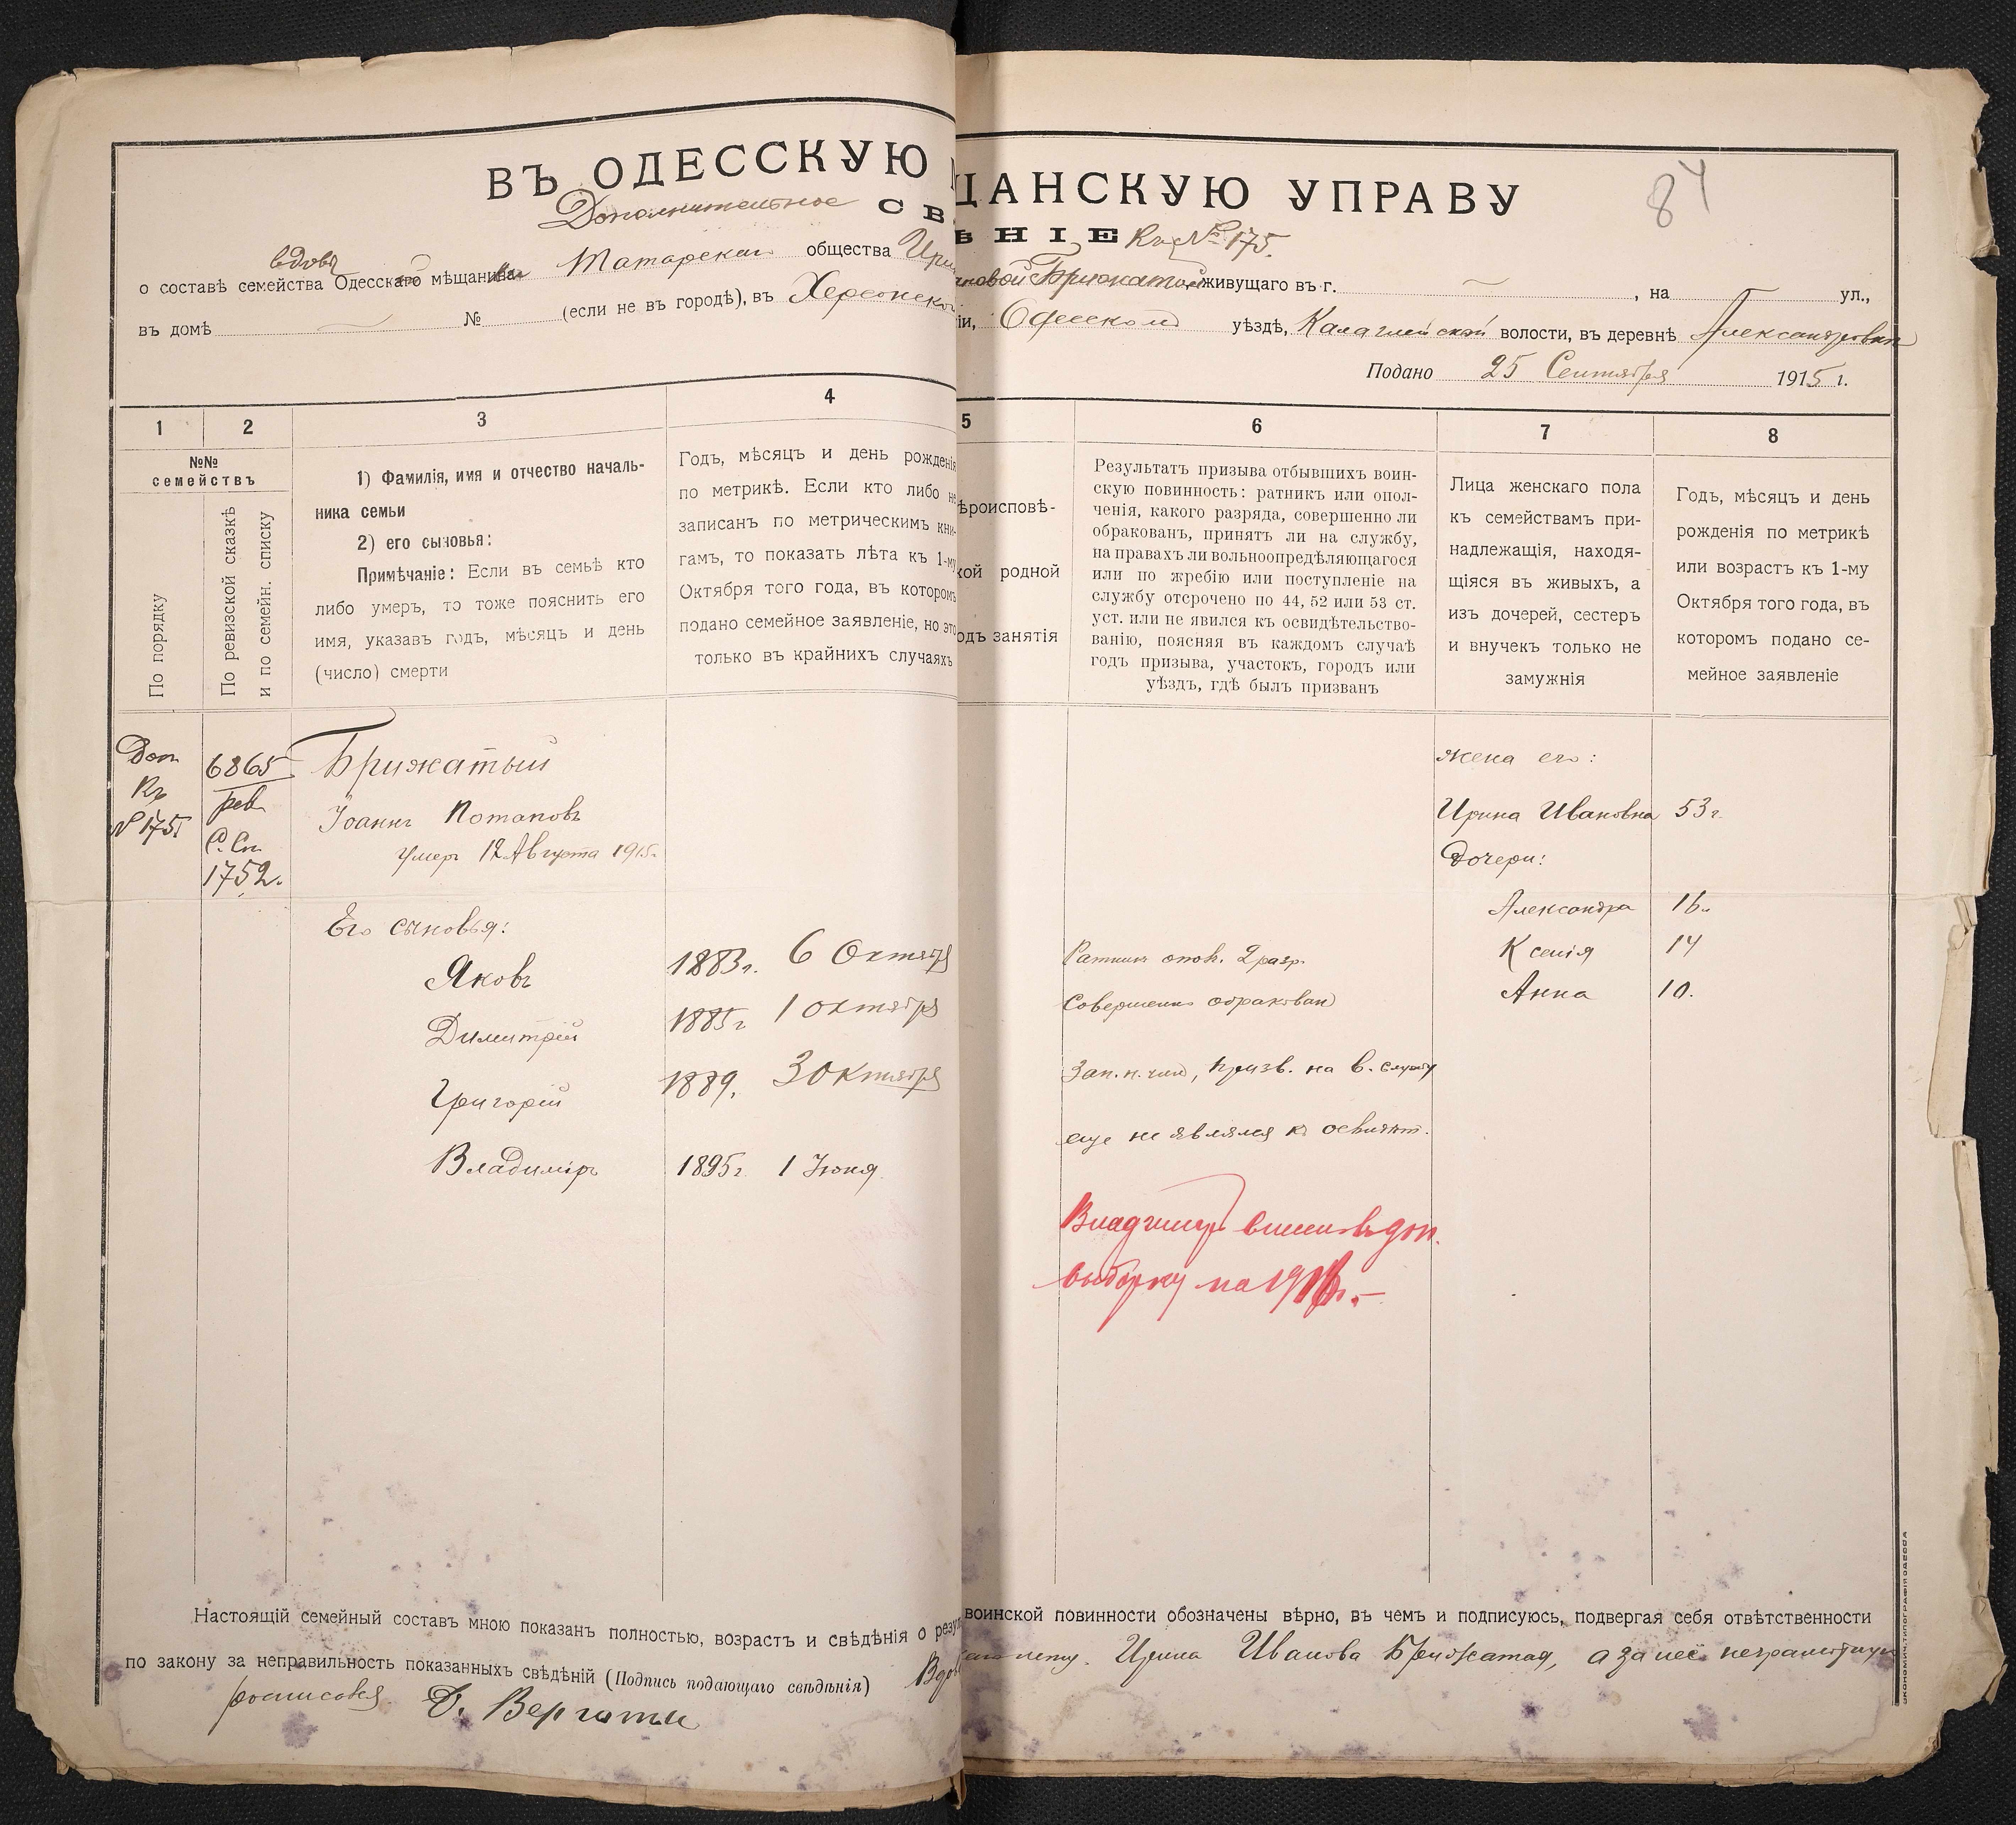 ВЪ ОДЕССКУЮ
ЩАНСКУЮ УПРАВУ
84
Дополнительное СВ
ѢНІЕ Къ № 175.
вдовы
о составѣ семейства Одесскаго мѣщанина Татарскаго общества Ири
новой Брижатый живущаго въ г. , на ул.,
въ домѣ № (если не въ городѣ), въ Херсонской
іи, Одесском уѣздѣ, Калаглейской волости, въ деревнѣ Александровки
Подано 25 Сентября 1915 г.
1 2 3 4 5 6 7 8
№№
семействъ
По порядку
По ревизской сказкѣ
и по семейн. списку
1) Фамилія, имя и отчество началь-
ника семьи
2) его сыновья:
Примѣчаніе: Если въ семьѣ кто
либо умеръ, то тоже пояснить его
имя, указавъ годъ, мѣсяцъ и день
(число) смерти
Годъ, мѣсяцъ и день рожденія
по метрикѣ. Если кто либо не
записанъ по метрическимъ кни-
гамъ, то показать лѣта къ 1-му
Октября того года, въ которомъ
подано семейное заявленіе, но это
только въ крайнихъ случаяхъ
ѣроисповѣ-
кой родной
одъ занятія
Результатъ призыва отбывшихъ воин-
скую повинность: ратникъ или опол-
ченія, какого разряда, совершенно ли
обракованъ, принятъ ли на службу,
на правахъ ли вольноопредѣляющагося
или по жребію или поступленіе на
службу отсрочено по 44, 52 или 53 ст.
уст. или не явился къ освидѣтельство-
ванію, поясняя въ каждомъ случаѣ
годъ призыва, участокъ, городъ или
уѣздъ, гдѣ былъ призванъ
Лица женскаго пола
къ семействамъ при-
надлежащія, находя-
щіяся въ живыхъ, а
изъ дочерей, сестеръ
и внучекъ только не
замужнія
Годъ, мѣсяцъ и день
рожденія по метрикѣ
или возрастъ къ 1-му
Октября того года, въ
которомъ подано се-
мейное заявленіе
Доп
Къ
№ 175
6865
рев.
С. Сп.
1752.
Брижатый
Іоаннъ Потаповъ
умеръ 12 Августа 1915г.
Его сыновья:
Яковъ 1883г. 6 Октября
Димитрій 1885г 1 Октября
Григорій 1889. 3 Октября
Владиміръ 1895г. 1 Іюня
Ратник опол. 2 разр.
Совершенно обракован
Зап. н. чин, призв. на в. службу
еще не являлся к освидѣт.
Владиміръ внесен въ доп.
выборку на 1916г.-
жена его:
Ирина Ивановна 53 г.
Дочери:
Александра 16.
Ксенія 14
Анна 10.
Настоящій семейный составъ мною показанъ полностью, возрастъ и свѣдѣнія о резул
воинской повинности обозначены вѣрно, въ чемъ и подписуюсь, подвергая себя отвѣтственности
по закону за неправильность показанныхъ свѣдѣній (Подпись подающаго свѣдѣнія) Вдо
Ирина Иванова Брижатая, а за неё неграмотную
росписовся Д. Вергати
ЭКОНОМИЧ. ТИПОГРАФІЯ ОДЕССА